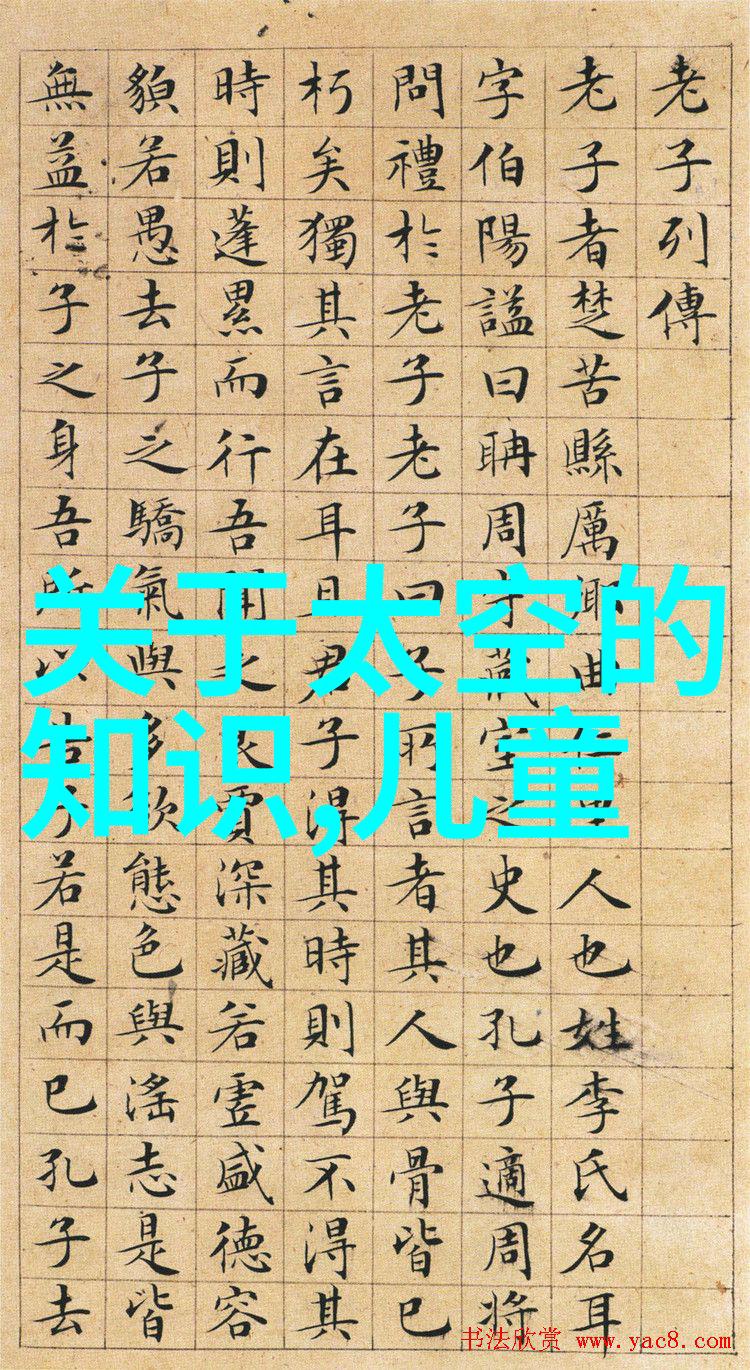 老子列傳
老子者楚苦縣厲鄉曲仁里人也姓李氏名耳
字伯陽謚曰聃周守藏室之史也孔子適周將
問禮於老子老子曰子所言者其人與骨皆已
朽矣獨其言在耳且君子得其時則駕不得其
時則蓬累而行吾聞之良賈深藏若虛盛德容
貌若愚去子之驕氣與多欲態色與淫志是皆
無益於子之身吾所以告子若是而已孔子去
关于太空的
知识,儿童
书法欣赏 www.yac8.com